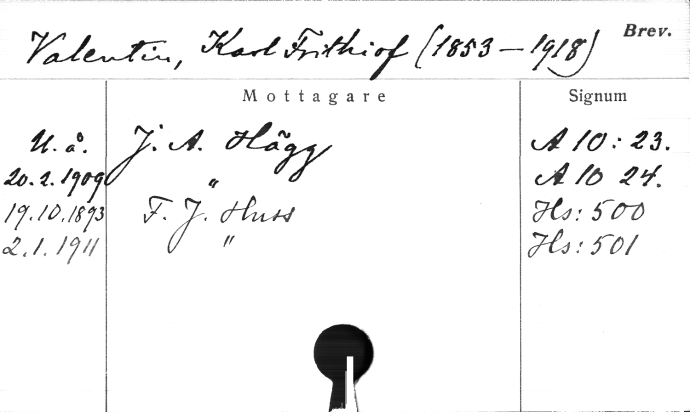 Valentin, Karl Frithiof (1853–1918) Brev.
Mottagare Signum
U. å. J. A. Hägg A 10: 23.
20.2.1909 " A 10 24.
19.10.1893 F. J. Huss Hs: 500
2.1.1911 " Hs: 501